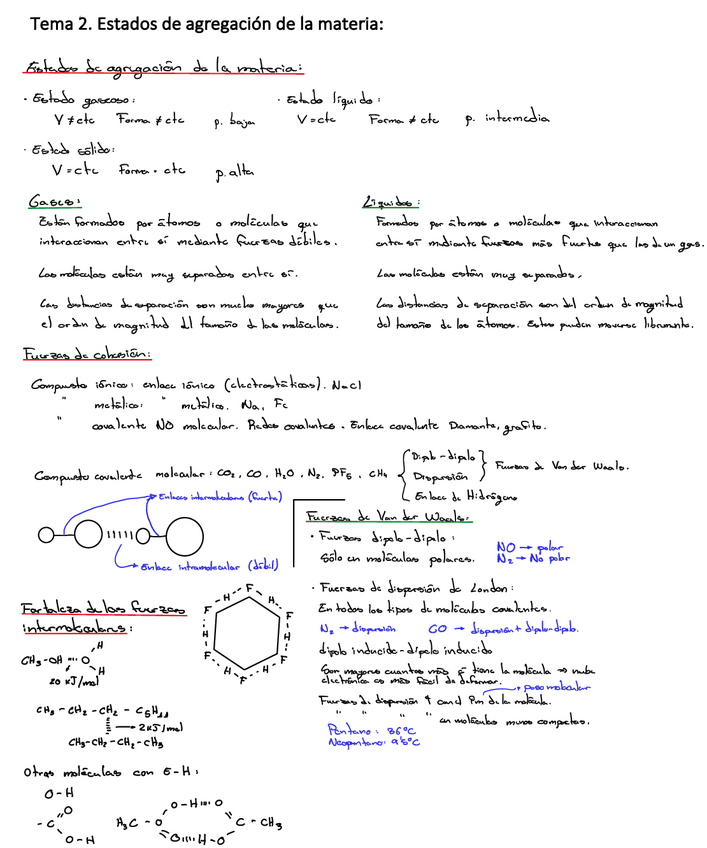 Tema 2. Estados de agregación de la materia:
Estados de agregación de la materia:
· Estado gaseoso:
V ≠ cte Forma ≠ cte p. baja
· Estado líquido:
V = cte Forma ≠ cte p. intermedia
· Estado sólido:
V = cte Forma = cte p. alta
Gases:
Están formados por átomos o moléculas que
interaccionan entre sí mediante fuerzas débiles.
Las moléculas están muy separadas entre sí.
Las distancias de separación son mucho mayores que
el orden de magnitud del tamaño de las moléculas.
Líquidos:
Formados por átomos o moléculas que interaccionan
entre sí mediante fuerzas más fuertes que las de un gas.
Las moléculas están muy separados.
Las distancias de separación son del orden de magnitud
del tamaño de los átomos. Estos pueden moverse libremente.
Fuerzas de cohesión:
Compuesto iónico: enlace iónico (electrostáticas). NaCl
" metálico: " metálico. Na, Fe
" covalente NO molecular. Redes covalentes. Enlace covalente Diamante, grafito.
Compuesto covalente molecular: CO₂, CO, H₂O, N₂, PF₅, CH₄
Dipolo-dipolo
Dispersión
Fuerzas de Van der Waals.
Enlace de Hidrógeno
Enlaces intermoleculares (fuerte)
Enlace intramolecular (débil)
Fuerzas de Van der Waals:
· Fuerzas dipolo-dipolo:
Sólo en moléculas polares.
NO → polar
N₂ → No polar
· Fuerzas de dispersión de London:
En todos los tipos de moléculas covalentes.
N₂ → dispersión CO → dispersión + dipolo-dipolo.
dipolo inducido-dipolo inducido
Son mayores cuantos más e⁻ tiene la molécula → nube
electrónica es más fácil de deformar.
→ peso molecular
Fuerzas de dispersión ↑ cuand Pm de la molécula.
" " " en moléculas menos compactas.
Pentano: 36°C
Neopentano: 9'5°C
Fortaleza de las fuerzas
intermoleculares:
CH₃-OH ···· O
H
H
20 KJ/mol
CH₃ - CH₂ - CH₂ - C₅H₁₁
2KJ/mol
CH₃-CH₂-CH₂-CH₃
F
H
F
H
F
H
F
H
F
H
F
H
Otras moléculas con E-H:
O-H
- C
O
O-H
H₃C - C
O-H···· O
O····H-O
C - CH₃